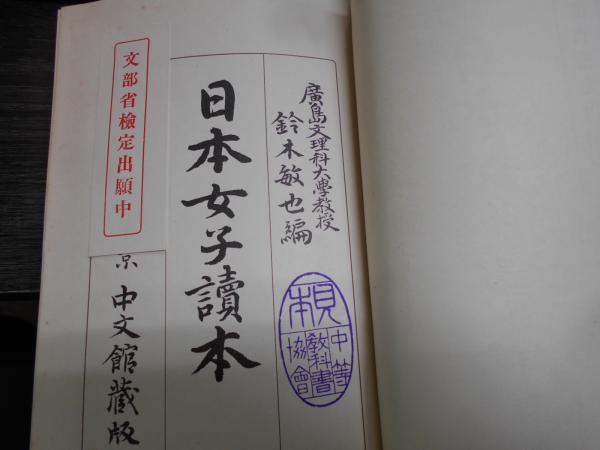 廣島文理科大學教授
鈴木敏也編
見本
中等
教科書
協會
日本女子讀本
文部省檢定出願中
京 中文館藏版